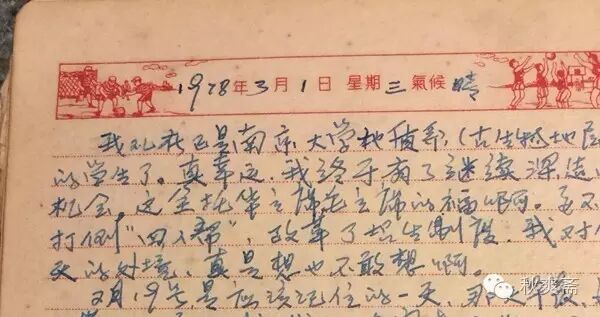 1978年3月1日 星期三 氣候 晴
我 是南京大学地质系（古生物地层
的学生了。真幸运，我终于有了继续深造
机会，这全托华主席毛主席的福啊。要不
打倒“四人帮”，改革了招生制度，我对今
天的处境，真是想也不敢想啊。
2月19号是应该记住的一天，那天早饭，
秋爽斋